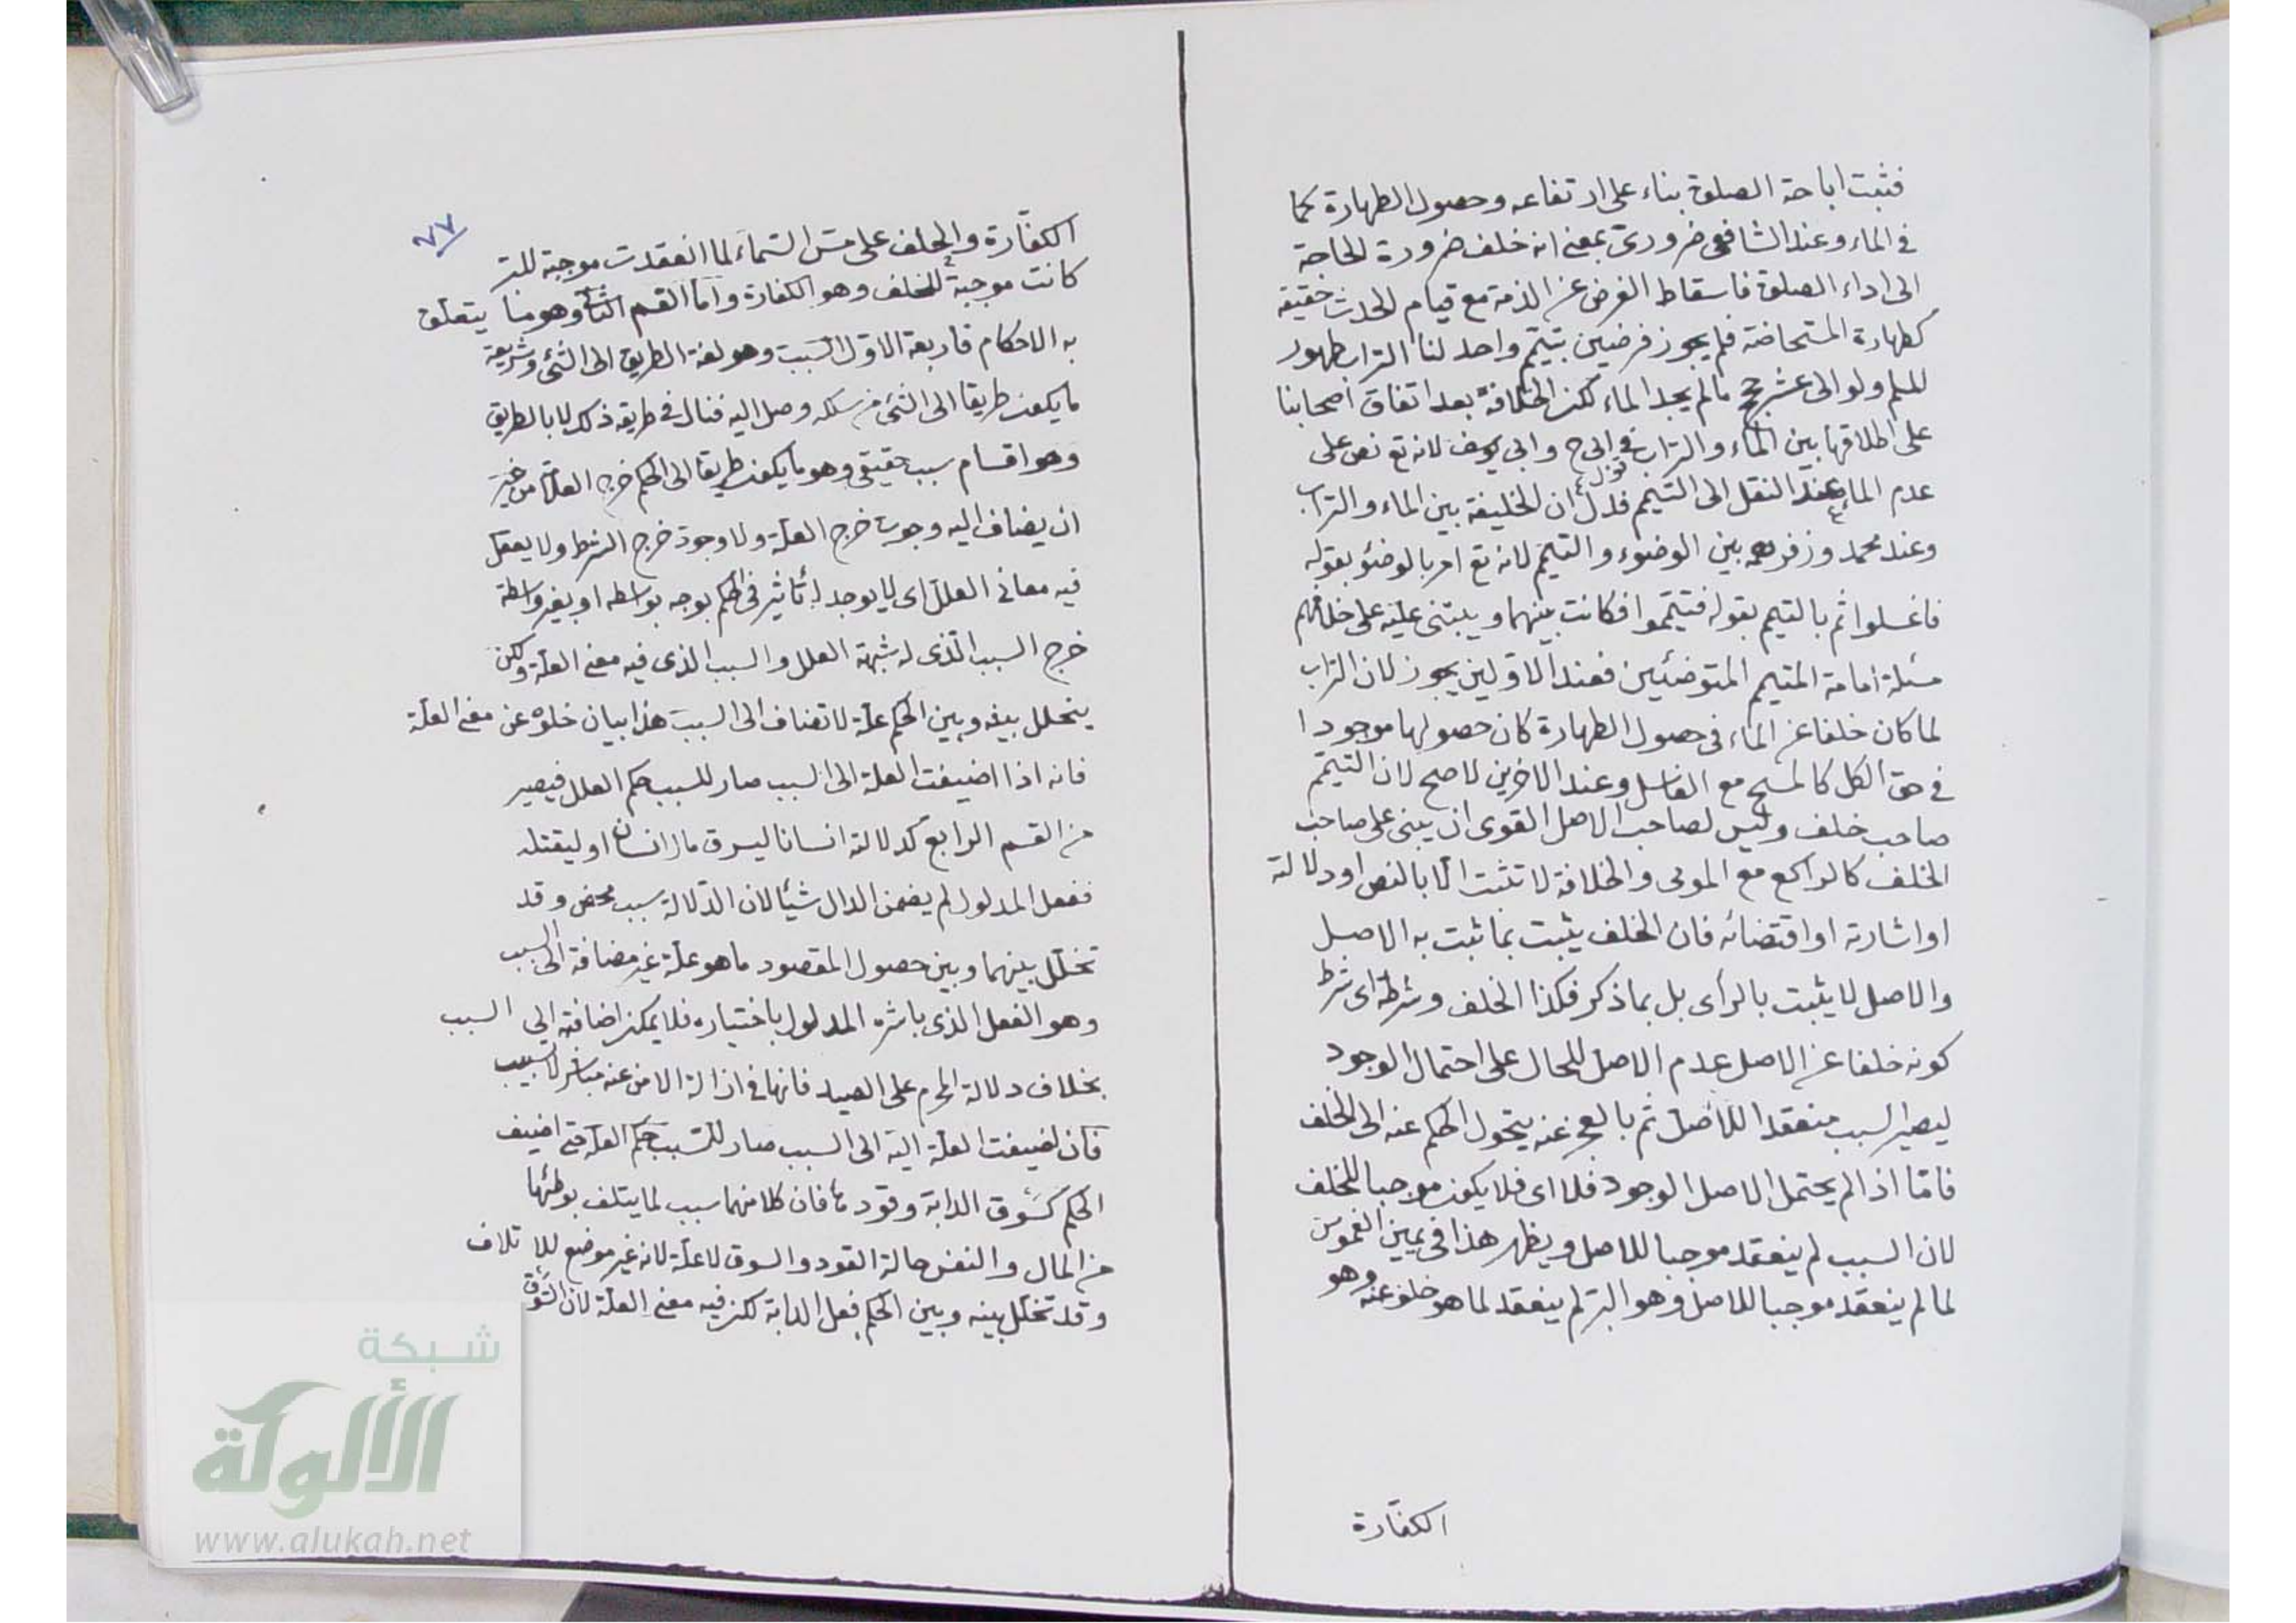 فثبت اباحة الصلوة بناء على ارتفاعه وحصول الطهارة كما
في الماء وعند الشافعي ضروري بمعنى انه خلف ضرورة الحاجة
الى اداء الصلوة فاسقاط الفرض عن الذمة مع قيام الحدث حقيقة
كطهارة المستحاضة فلم يجوز فرضين بتيمم واحد لنا التراب طهور
للمسلم ولو الى عشر حجج ما لم يجد الماء لكن الخلافة بعد اتفاق اصحابنا
على اطلاقها بين الماء والتراب في ابى ح وابى يوسف لانه تع نص على
قول
عدم الماء عند النقل الى التيمم فدل ان الخليفة بين الماء والتراب
وعند محمد وزفر رحمه بين الوضوء والتيمم لانه تع امر بالوضوء بقوله
فاغسلوا ثم بالتيمم بقوله فتيمموا فكانت بينهما ويبتنى عليه على خلافهم
مسئلة امامة المتيمم المتوضئين فعند الاولين يجوز لان التراب
لما كان خلفا عن الماء في حصول الطهارة كان حصولها موجودا
في حق الكل كالمسح مع الغاسل وعند الاخرين لا صح لان التيمم
صاحب خلف وليس لصاحب الاصل القوى ان يبنى على صاحب
الخلف كالراكع مع المومى والخلافة لا تثبت الا بالنص او دلالته
او اشارته او اقتضائه فان الخلف يثبت بما ثبت به الاصل
والاصل لا يثبت بالرأى بل بما ذكر فكذا الخلف وشرطه اى شرط
كونه خلفا عن الاصل عدم الاصل للحال على احتمال الوجود
ليصير السبب منعقدا للاصل ثم بالعجز عنه يتحول الحكم عنه الى الخلف
فامّا اذا لم يحتمل الاصل الوجود فلا اى فلا يكون موجبا للخلف
لان السبب لم ينعقد موجبا للاصل ويظهر هذا فى يمين الغموس
لما لم ينعقد موجبا للاصل وهو البر لم ينعقد لما هو خلف عنه وهو
الكفّارة
٧٧
الكفّارة والحلف على مسّ السّماء لما انعقدت موجبة للبرّ
كانت موجبة للخلف وهو الكفارة وامّا القسم الثانى وهو ما يتعلّق
به الاحكام فاربعة الاوّل السّبب وهو لغة الطريق الى الشئ وشريعة
ما يكون طريقا الى الشئ من سلكه وصل اليه فنال في طريقه ذلك لا بالطريق
وهو اقسام سبب حقيقى وهو ما يكون طريقا الى الحكم خرج العلامة من غير
ان يضاف اليه وجوب خرج العلّة ولا وجود خرج الشرط ولا يعقل
فيه معانى العلل اى لا يوجد له تأثير فى الحكم بوجه بواسطة او بغير واسطة
خرج السبب الّذى له شبهة العلل والسبب الذى فيه معنى العلّة ولكن
يتخلل بينه وبين الحكم علّة لا تضاف الى السبب هذا بيان خلوّه عن معنى العلّة
فانه اذا اضيفت العلة الى السبب صار للسبب حكم العلل فيصير
من القسم الرابع كدلالة انسانا ليسرق مال انسان او ليقتله
ففعل المدلول لم يضمن الدال شيئا لان الدّلالة سبب محض وقد
تخلّل بينهما وبين حصول المقصود ما هو علّة غير مضافة الى السبب
وهو الفعل الذى باشره المدلول باختياره فلا يمكن اضافته الى السبب
بخلاف دلالة المحرم على الصيد فانها فى ازالة الامن عنه مباشر لا سبب
فان اضيفت العلّة اليه الى السبب صار للسّبب حكم العلّة حتى اضيف
الحكم كسوق الدابة وقودها فان كلا منهما سبب لما يتلف بوطئها
من المال والنفس حالة القود والسوق لا علّة لانه غير موضع للاتلاف
وقد تخلّل بينه وبين الحكم فعل الدابة لكن فيه معنى العلّة لان السّوق
شبكة
الألوكة
www.alukah.net